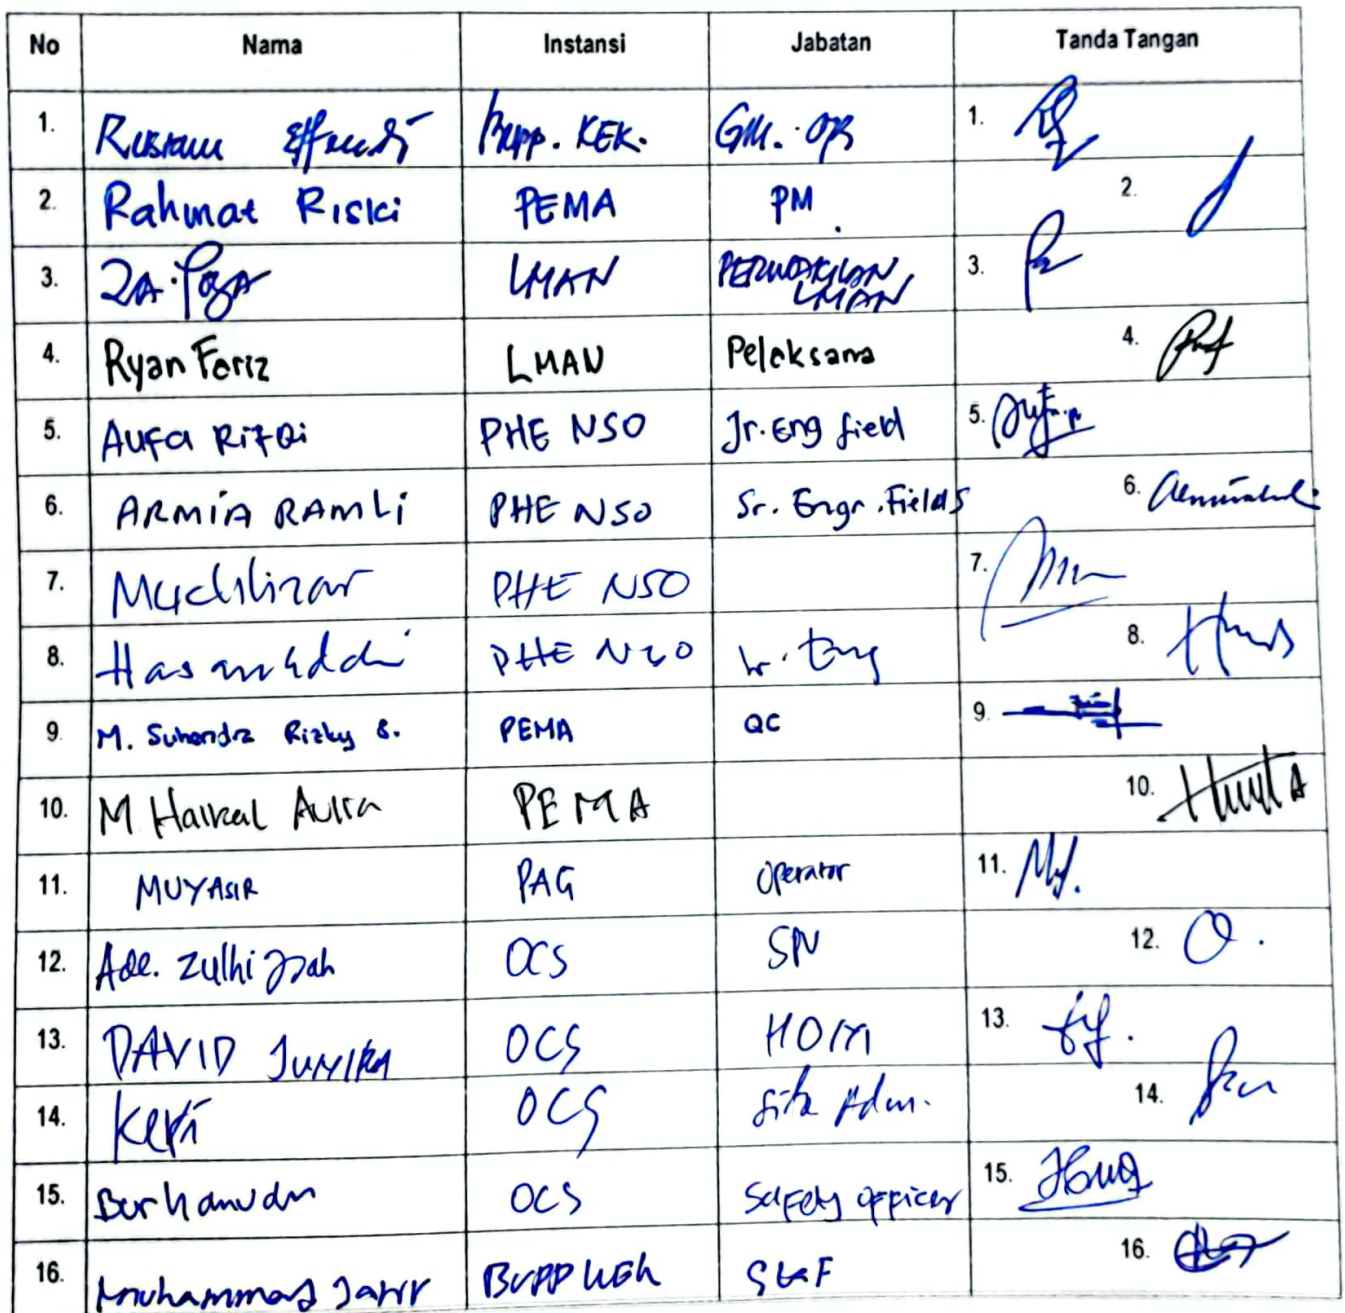 No Nama Instansi Jabatan Tanda Tangan
1. Rustam Effendi Bupp. KEK. GM. OPS 1.
2. Rahmat Riski PEMA PM 2.
3. LMAN PERWAKILAN LMAN 3.
4. Ryan Feriz LMAN Pelaksana 4.
5. Aufa Rifqi PHE NSO Jr. Eng field 5.
6. ARMIA RAMLI PHE NSO Sr. Engr. Fields 6.
7. Muchlizar PHE NSO 7.
8. Hasanuddin PHE NSO 8.
9. M. Suhendra Rizky S. PEMA QC 9.
10. M Haikal Aulia PEMA 10.
11. MUYASIR PAG Operator 11.
12. Ade. Zulhijjah OCS 12.
13. DAVID OCS 13.
14. OCS Site Adm. 14.
15. Burhanudin OCS Safety officer 15.
16. Muhammad BUPP KEK Staf 16.